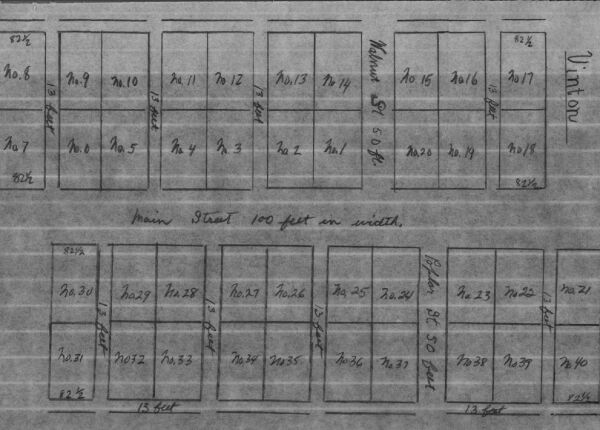 82½ 82½
Vinton
No.8 No.9 No.10 No.11 No 12 No.13 No 14 No 15 No 16 No 17
13 feet 13 feet 13 feet Walnut St 50 ft. 13 feet
No 7 No.6 No.5 No 4 No 3 No 2 No.1 No.20 No.19 No 18
82½ 82½
Main Street 100 feet in width.
82½
No.30 No29 No.28 No.27 No.26 No.25 No.24 No 23 No 22 No.21
13 feet 13 feet 13 feet Poplar St 50 feet 13 feet
No.31 No32 No.33 No34 No35 No36 No37 No38 No39 No40
82½ 82½
13 feet 13 feet